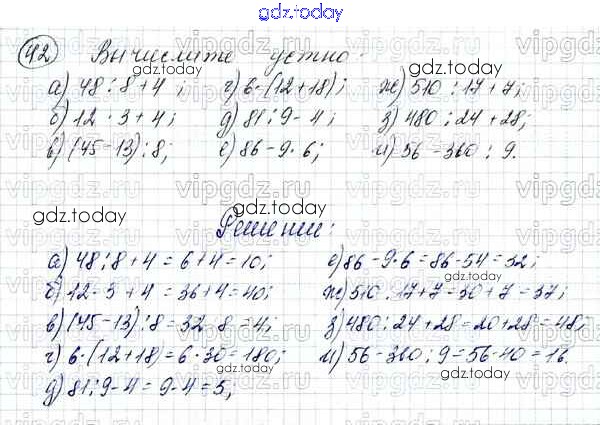 gdz.today
42 Вычислите устно:
а) 48 : 8 + 4 ; г) 6 · (12 + 18); ж) 510 : 17 + 7;
б) 12 · 3 + 4; д) 81 : 9 - 4; з) 480 : 24 + 28;
в) (45 - 13) : 8; е) 86 - 9 · 6; и) 56 - 360 : 9.
Решение:
а) 48 : 8 + 4 = 6 + 4 = 10; е) 86 - 9 · 6 = 86 - 54 = 32;
б) 12 · 3 + 4 = 36 + 4 = 40; ж) 510 : 17 + 7 = 30 + 7 = 37;
в) (45 - 13) : 8 = 32 : 8 = 4; з) 480 : 24 + 28 = 20 + 28 = 48;
г) 6 · (12 + 18) = 6 · 30 = 180; и) 56 - 360 : 9 = 56 - 40 = 16.
д) 81 : 9 - 4 = 9 - 4 = 5;
gdz.today
gdz.today
gdz.today
gdz.today
gdz.today
gdz.today
gdz.today
gdz.today
vipgdz.ru